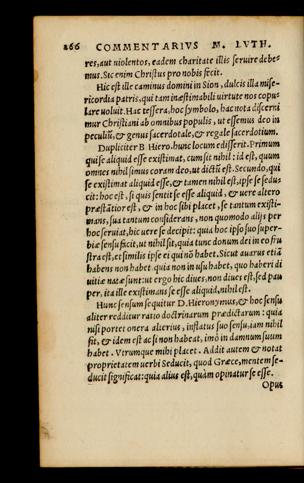 266 COMMENTARIVS M. LVTH.
res, aut uiolentos, eadem charitate illis seruire debe-
mus. Sic enim Christus pro nobis fecit.
Hic est ille caminus domini in Sion, dulcis illa mise-
ricordia patris, qui tam inæstimabili uirtute nos copu-
lare uoluit. Hac tessera, hoc symbolo, hac nota discerni
mur Christiani ab omnibus populis, ut essemus deo in
peculiũ, & genus sacerdotale, & regale sacerdotium.
Dupliciter B Hiero. hunc locum edisserit. Primum
qui se aliquid esse existimat, cum sit nihil: id est, quum
omnes nihil simus coram deo, ut dictũ est. Secundo, qui
se existimat aliquid esse, & tamen nihil est, ipse se sedu-
cit: hoc est, si quis sentit se esse aliquid, & uere altero
præstãtior est, & in hoc sibi placet, se tantum existi-
mans, sua tantum considerans, non quomodo alijs per
hoc seruiat, hic uere se decipit: quia hoc ipso suo super-
biæ sensu facit, ut nihil sit, quia tunc donum dei in eo fru
stra est, et similis ipse ei qui nõ habet. Sicut auarus etiã
habens non habet quia non in usu habet, quo haberi di
uitiæ natæ sunt: ut ergo hic diues, non diues est. sed pau
per, ita ille existimans se esse aliquid, nihil est.
Hunc sensum sequitur D. Hieronymus, & hoc sensu
aliter redditur ratio doctrinarum prædictarum: quia
nisi portet onera alterius, inflatus suo sensu, iam nihil
fit, & idem est ac si non habeat, imò in damnum suum
habet. Vtrumque mihi placet. Addit autem & notat
proprietatem uerbi Seducit, quod Græce, mentem se-
ducit significat: quia alius est, quàm opinatur se esse.
Opus